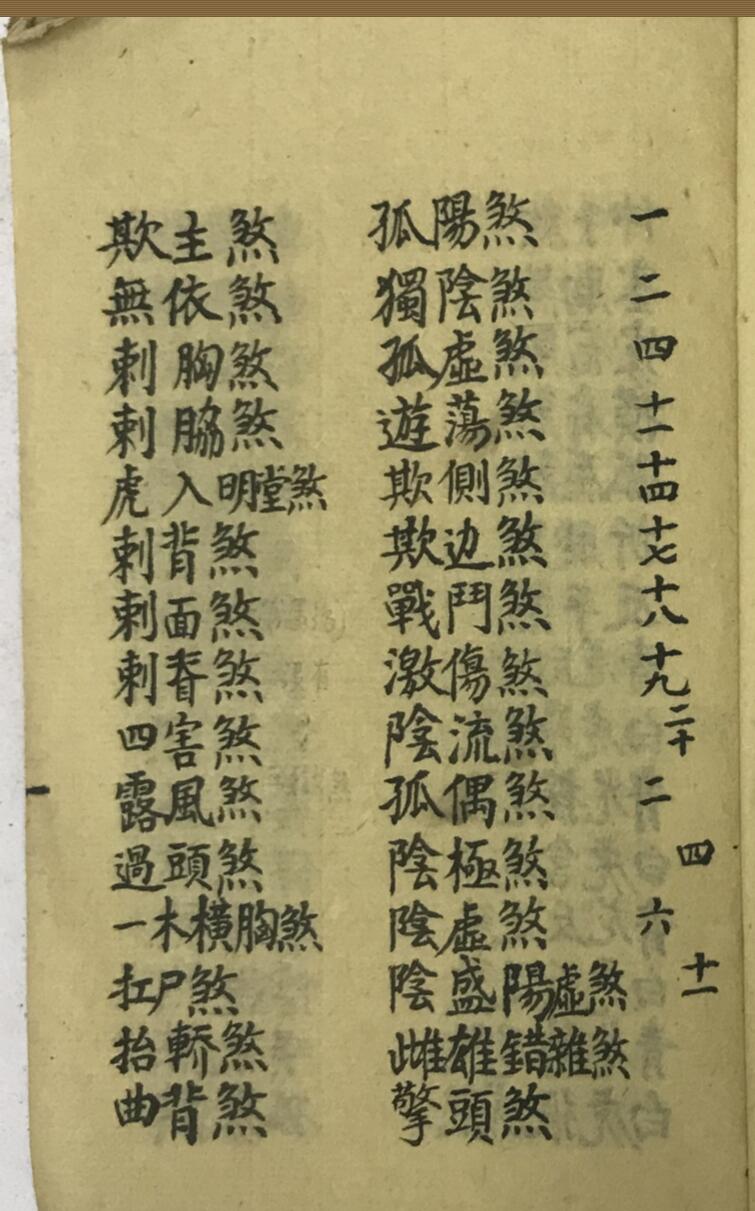 一 二 四 十一 十四 十七 十八 十九 二十 二 四 六 十一
孤陽煞
獨陰煞
孤虛煞
遊蕩煞
欺側煞
欺边煞
戰鬥煞
激傷煞
陰流煞
孤偶煞
陰極煞
陰虛煞
陰盛陽虛煞
雌雄錯雜煞
擎頭煞
欺主煞
無依煞
刺胸煞
刺脇煞
虎入明堂煞
刺背煞
刺面煞
刺脊煞
四害煞
露風煞
過頭煞
一木橫胸煞
扛尸煞
抬轎煞
曲背煞